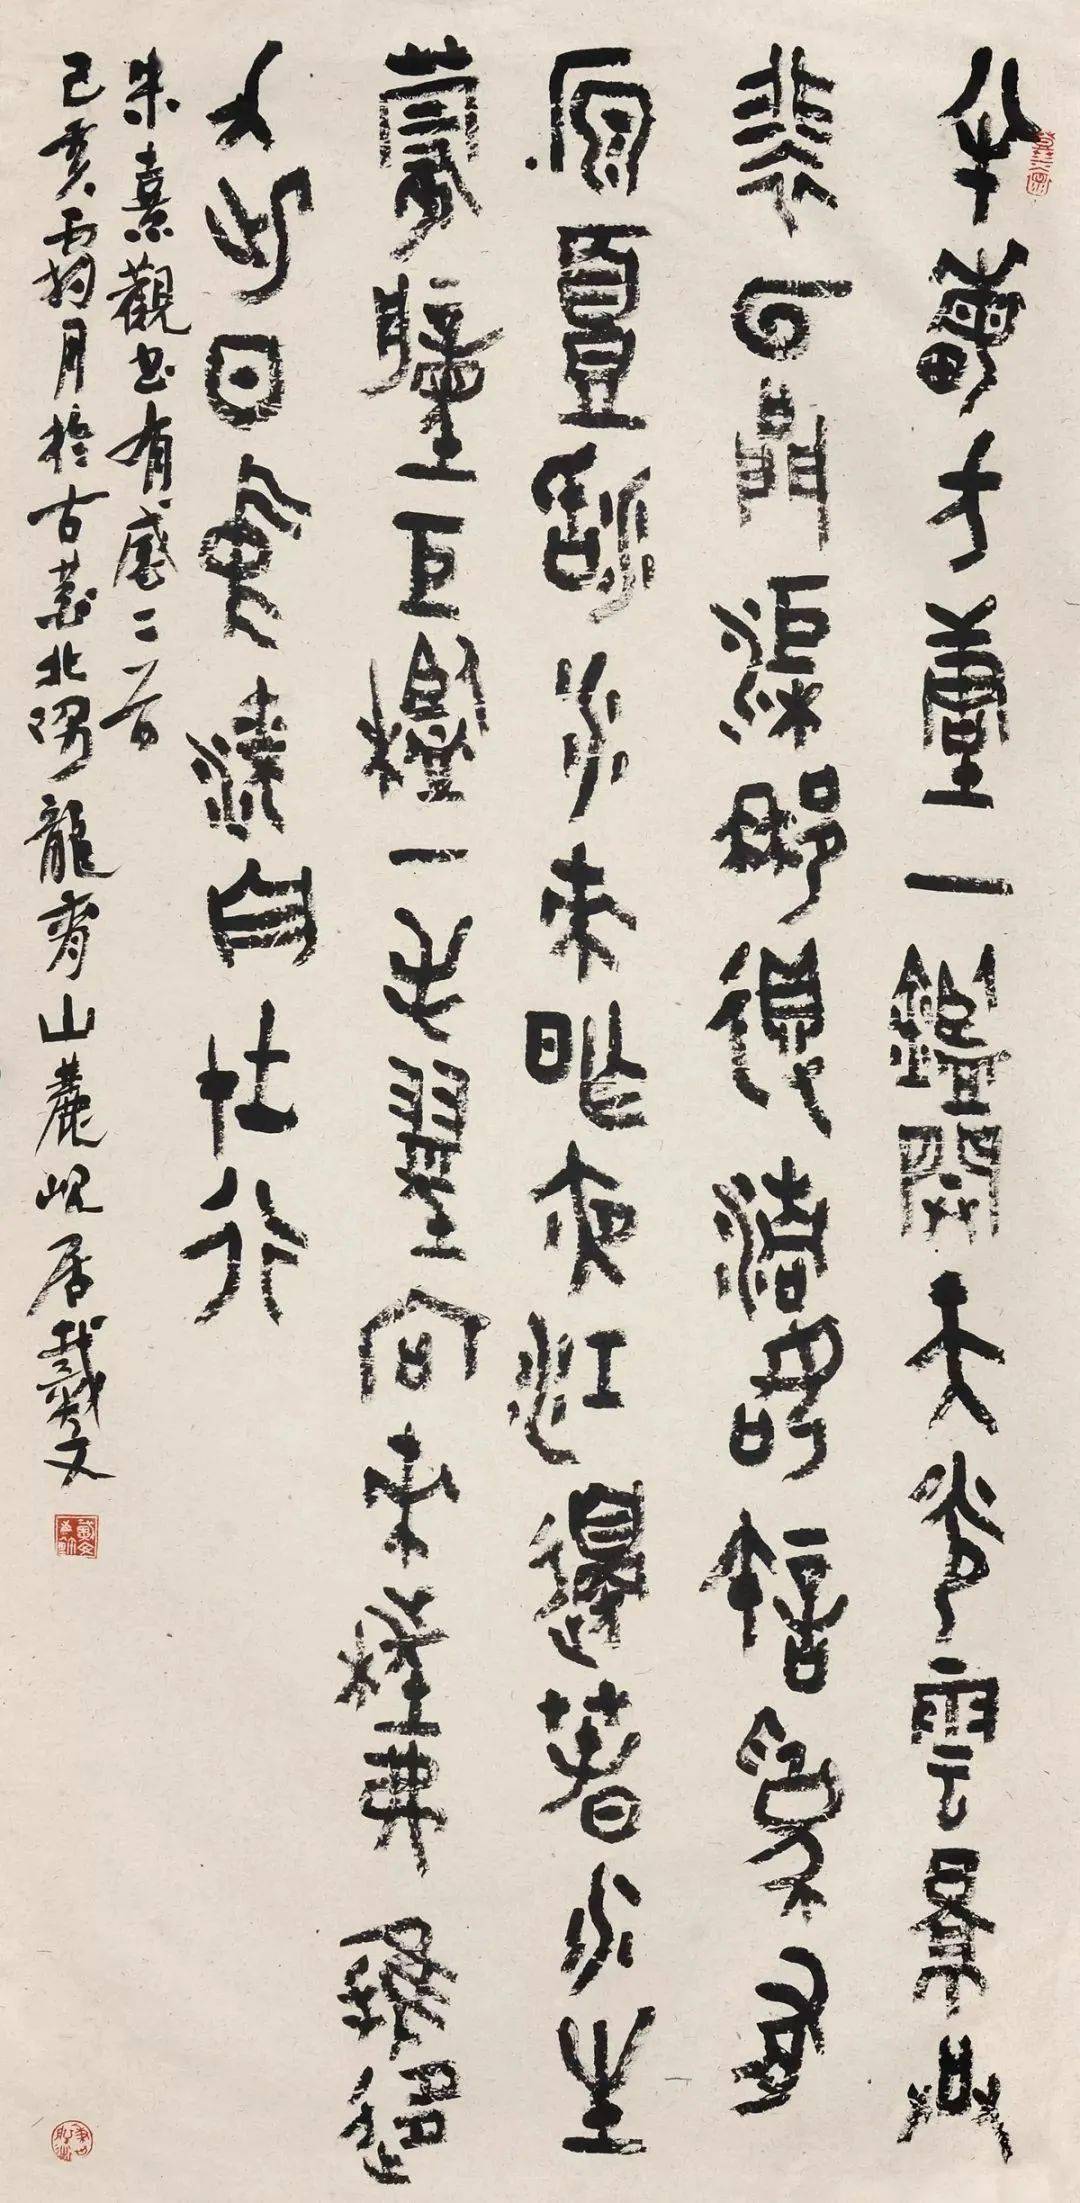 半畝方塘一鑑開天光雲景共
裴回問渠那得清如許為有
原頭活水來昨夜江邊春水生
蒙衝巨艦一毛輕向來枉費推移
力此日中流自在行
朱熹觀書有感二首
己亥霜月於古北隅龍脊山麓峴居戴文